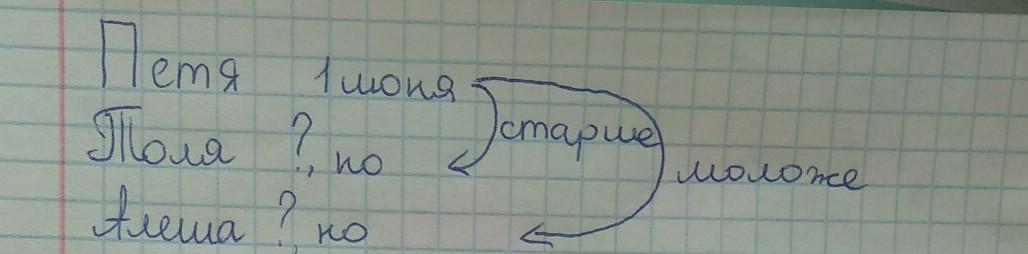 Петя 1 июня
Толя ?, но старше
Алеша ?, но моложе